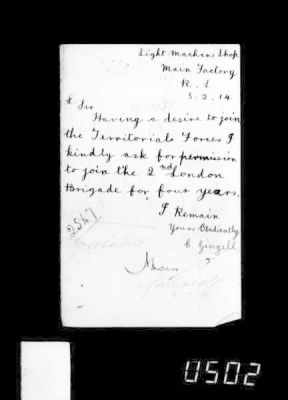 Light Machine Shop
Main Factory
R. L
5. 2. 14
Sir
Having a desire to join
the Territorial Forces I
kindly ask for permission
to join the 2nd London
Brigade for four years.
I Remain
Yours Obediently
C. Gingell
2547
0502